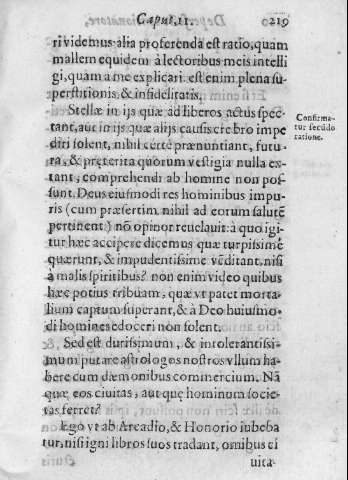 Caput. 11. 219
ri videmus alia proferenda est ratio, quam
mallem equidem à lectoribus meis intelli
gi, quam a me explicari. est enim plena su-
perstitionis, & infidelitatis.
Stellæ in ijs quæ ad liberos actus spec-
tant, aut in ijs quæ alijs causis crebro impe
diri solent, nihil certè prænuntiant, futu-
ra, & præterita quorum vestigia nulla ex-
tant, comprehendi ab homine non pos-
sunt. Deus eiusmodi res hominibus impu-
ris (cum præsertim nihil ad eorum salutẽ
pertinent) nõ opinor reuelauit. à quo igi
tur hæc accipere dicemus quæ turpissimè
quærunt, & impudentissime vẽditant, nisi
a malis spiritibus? non enim video quibus
hæc potius tribuam, quæ vt patet morta-
lium captum superant, & à Deo huiusmo-
di homines edoceri non solent.
Sed est durissimum, & intolerantissi-
mum putare astrologos nostros vllum ha-
bere cum dæmonibus commercium. Nã
quæ eos ciuitas, aut quę hominum socie-
tas ferret?
Ego vt ab Arcadio, & Honorio iubeba
tur, nisi igni libros suos tradant, omnibus ci
uita-
Confirma-
tur secũdo
ratione.